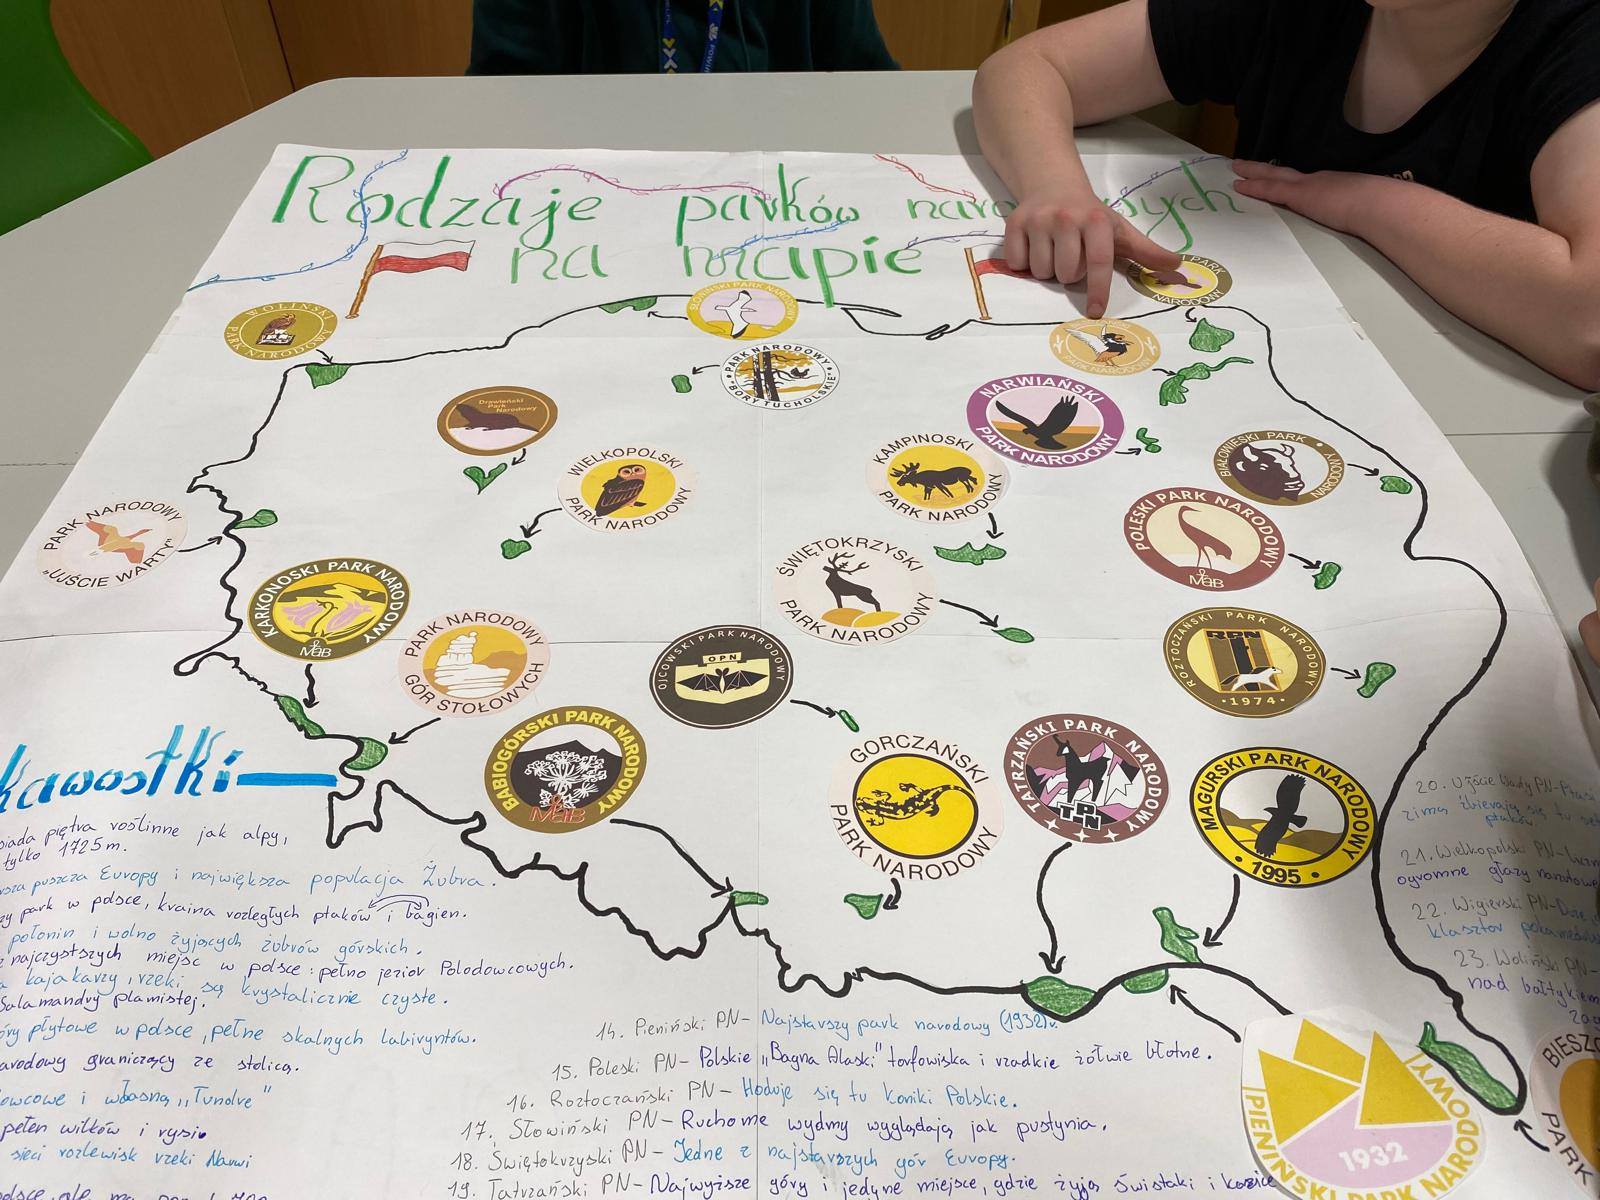 Rodzaje parków
na mapie
WOLIŃSKI PARK NARODOWY
SŁOWIŃSKI PARK NARODOWY
PARK NARODOWY
PARK NARODOWY
PARK NARODOWY „BORY TUCHOLSKIE”
Drawieński Park Narodowy
NARWIAŃSKI PARK NARODOWY
WIELKOPOLSKI PARK NARODOWY
KAMPINOSKI PARK NARODOWY
BIAŁOWIESKI PARK NARODOWY
PARK NARODOWY „UJŚCIE WARTY”
POLESKI PARK NARODOWY
MaB
ŚWIĘTOKRZYSKI PARK NARODOWY
KARKONOSKI PARK NARODOWY
MaB
PARK NARODOWY GÓR STOŁOWYCH
OJCOWSKI PARK NARODOWY
OPN
ROZTOCZAŃSKI PARK NARODOWY
RPN
1974
BABIOGÓRSKI PARK NARODOWY
MaB
GORCZAŃSKI PARK NARODOWY
TATRZAŃSKI PARK NARODOWY
TPN
MAGURSKI PARK NARODOWY
1995
kawostki
piętra roślinne jak alpy,
tylko 1725 m.
puszcza Europy i największa populacja Żubra.
park w polsce, kraina rozległych ptaków i bagien.
połonin i wolno żyjących żubrów górskich.
najczystszych miejsc w polsce: pełno jezior Polodowcowych.
kajakarzy, rzeki są krystalicznie czyste.
Salamandry plamistej.
płytowe w polsce, pełne skalnych labiryntów.
narodowy graniczący ze stolicą.
i własną „Tundre”
pełen wilków i rysi.
sieci rozlewisk rzeki Narwi
14. Pieniński PN- Najstarszy park narodowy (1932)r.
15. Poleski PN- Polskie „Bagna Alaski” torfowiska i rzadkie żółwie błotne.
16. Roztoczański PN- Hoduje się tu Koniki Polskie.
17. Słowiński PN- Ruchome wydmy wyglądają jak pustynia.
18. Świętokrzyski PN- Jedne z najstarszych gór Europy.
19. Tatrzański PN- Najwyższe góry i jedyne miejsce, gdzie żyją Świstaki i kozice
20. Ujście Warty PN-
zimą zbierają się tu
ptaków.
21. Wielkopolski PN-
ogromne głazy
22. Wigierski PN-
klasztor
23. Woliński PN-
nad bałtykiem
PIENIŃSKI PARK NARODOWY
1932
PARK